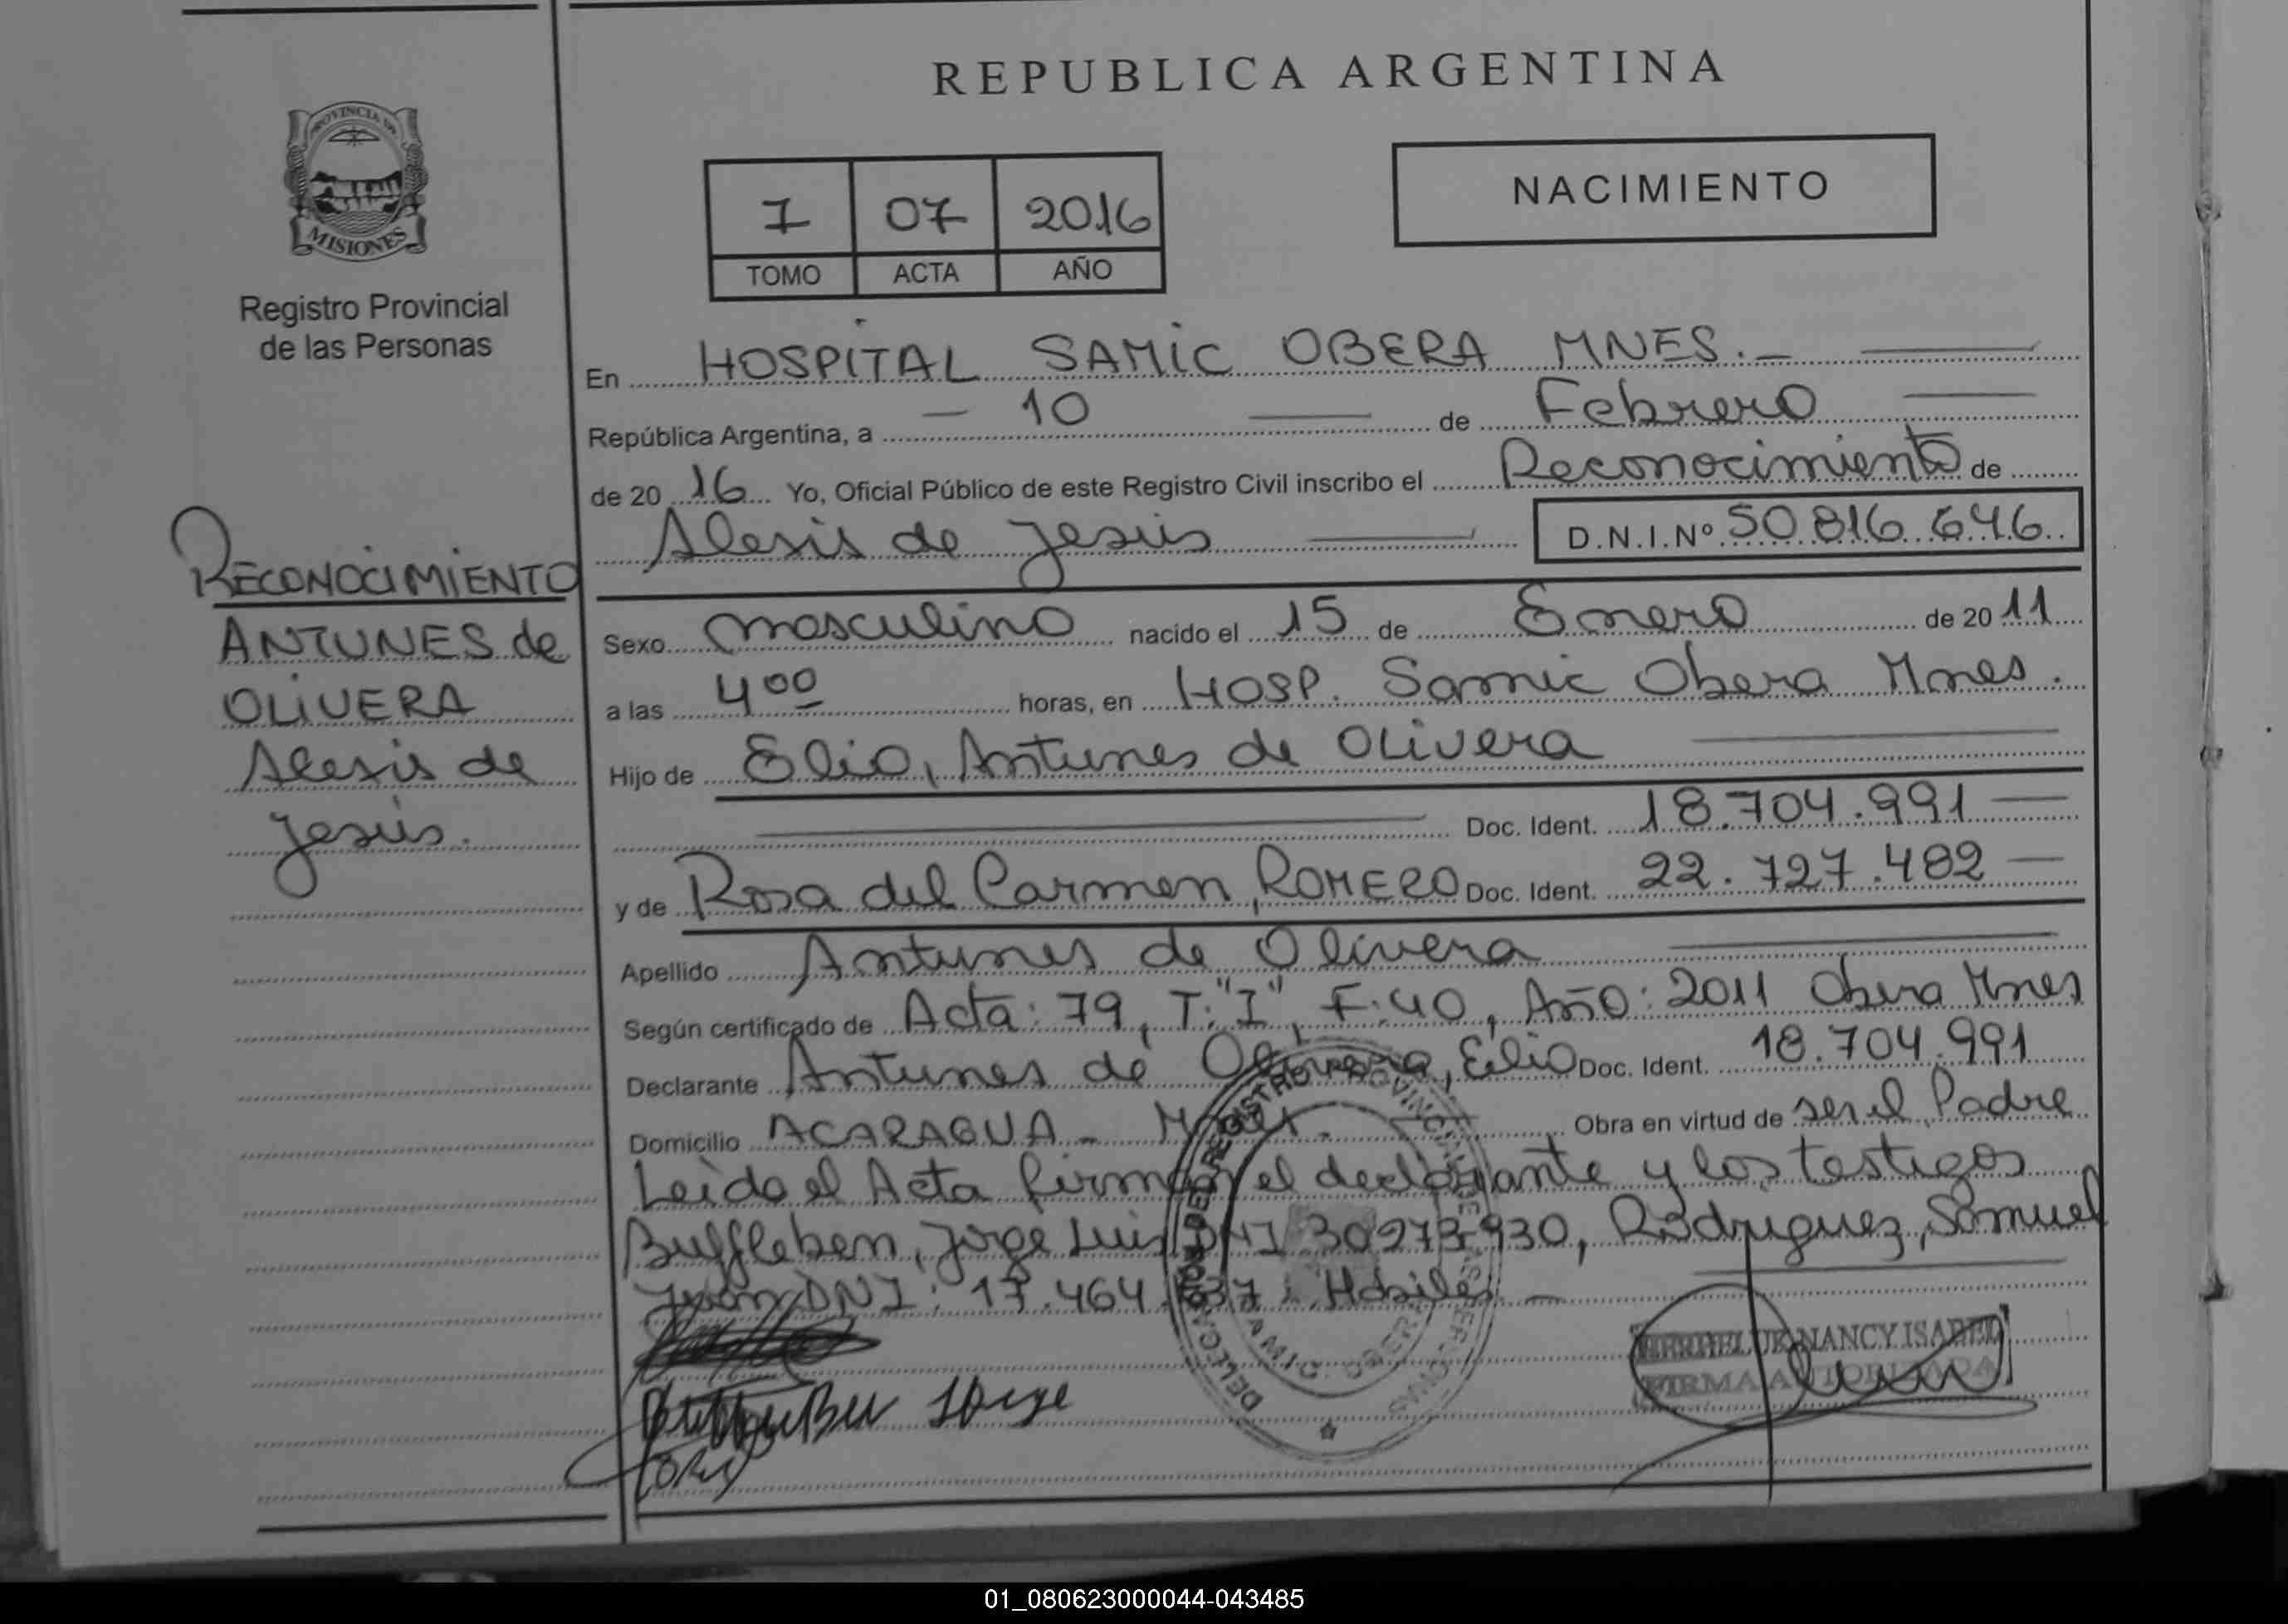 REPUBLICA ARGENTINA
PROVINCIA DE
MISIONES
Registro Provincial
de las Personas
7 07 2016
TOMO ACTA AÑO
NACIMIENTO
En HOSPITAL SAMIC OBERA MNES.-
República Argentina, a - 10 de Febrero
de 20 16 Yo, Oficial Público de este Registro Civil inscribo el Reconocimiento de
Alexis de Jesús D.N.I.Nº 50.816.646
RECONOCIMIENTO
ANTUNES de
OLIVERA
Alexis de
Jesús.
Sexo masculino nacido el 15 de Enero de 20 11
a las 4 00 horas, en HOSP. Samic Obera Mnes.
Hijo de Elio, Antunes de Olivera
Doc. Ident. 18.704.991
y de Rosa del Carmen, ROMERO Doc. Ident. 22.727.482
Apellido Antunes de Olivera
Según certificado de Acta: 79, T: "I", F: 40, Año: 2011 Obera Mnes
Declarante Antunes de Olivera, Elio Doc. Ident. 18.704.991
Domicilio ACARAGUA - Mnes. Obra en virtud de ser el Padre
Leido el Acta firman el declarante y los testigos
Buffleben, Jorge Luis DNI 30973930, Rodriguez, Samuel
Juan DNI: 17.464. Habiles -
NANCY ISABEL
FIRMA AUTORIZADA
Jorge
01_080623000044-043485